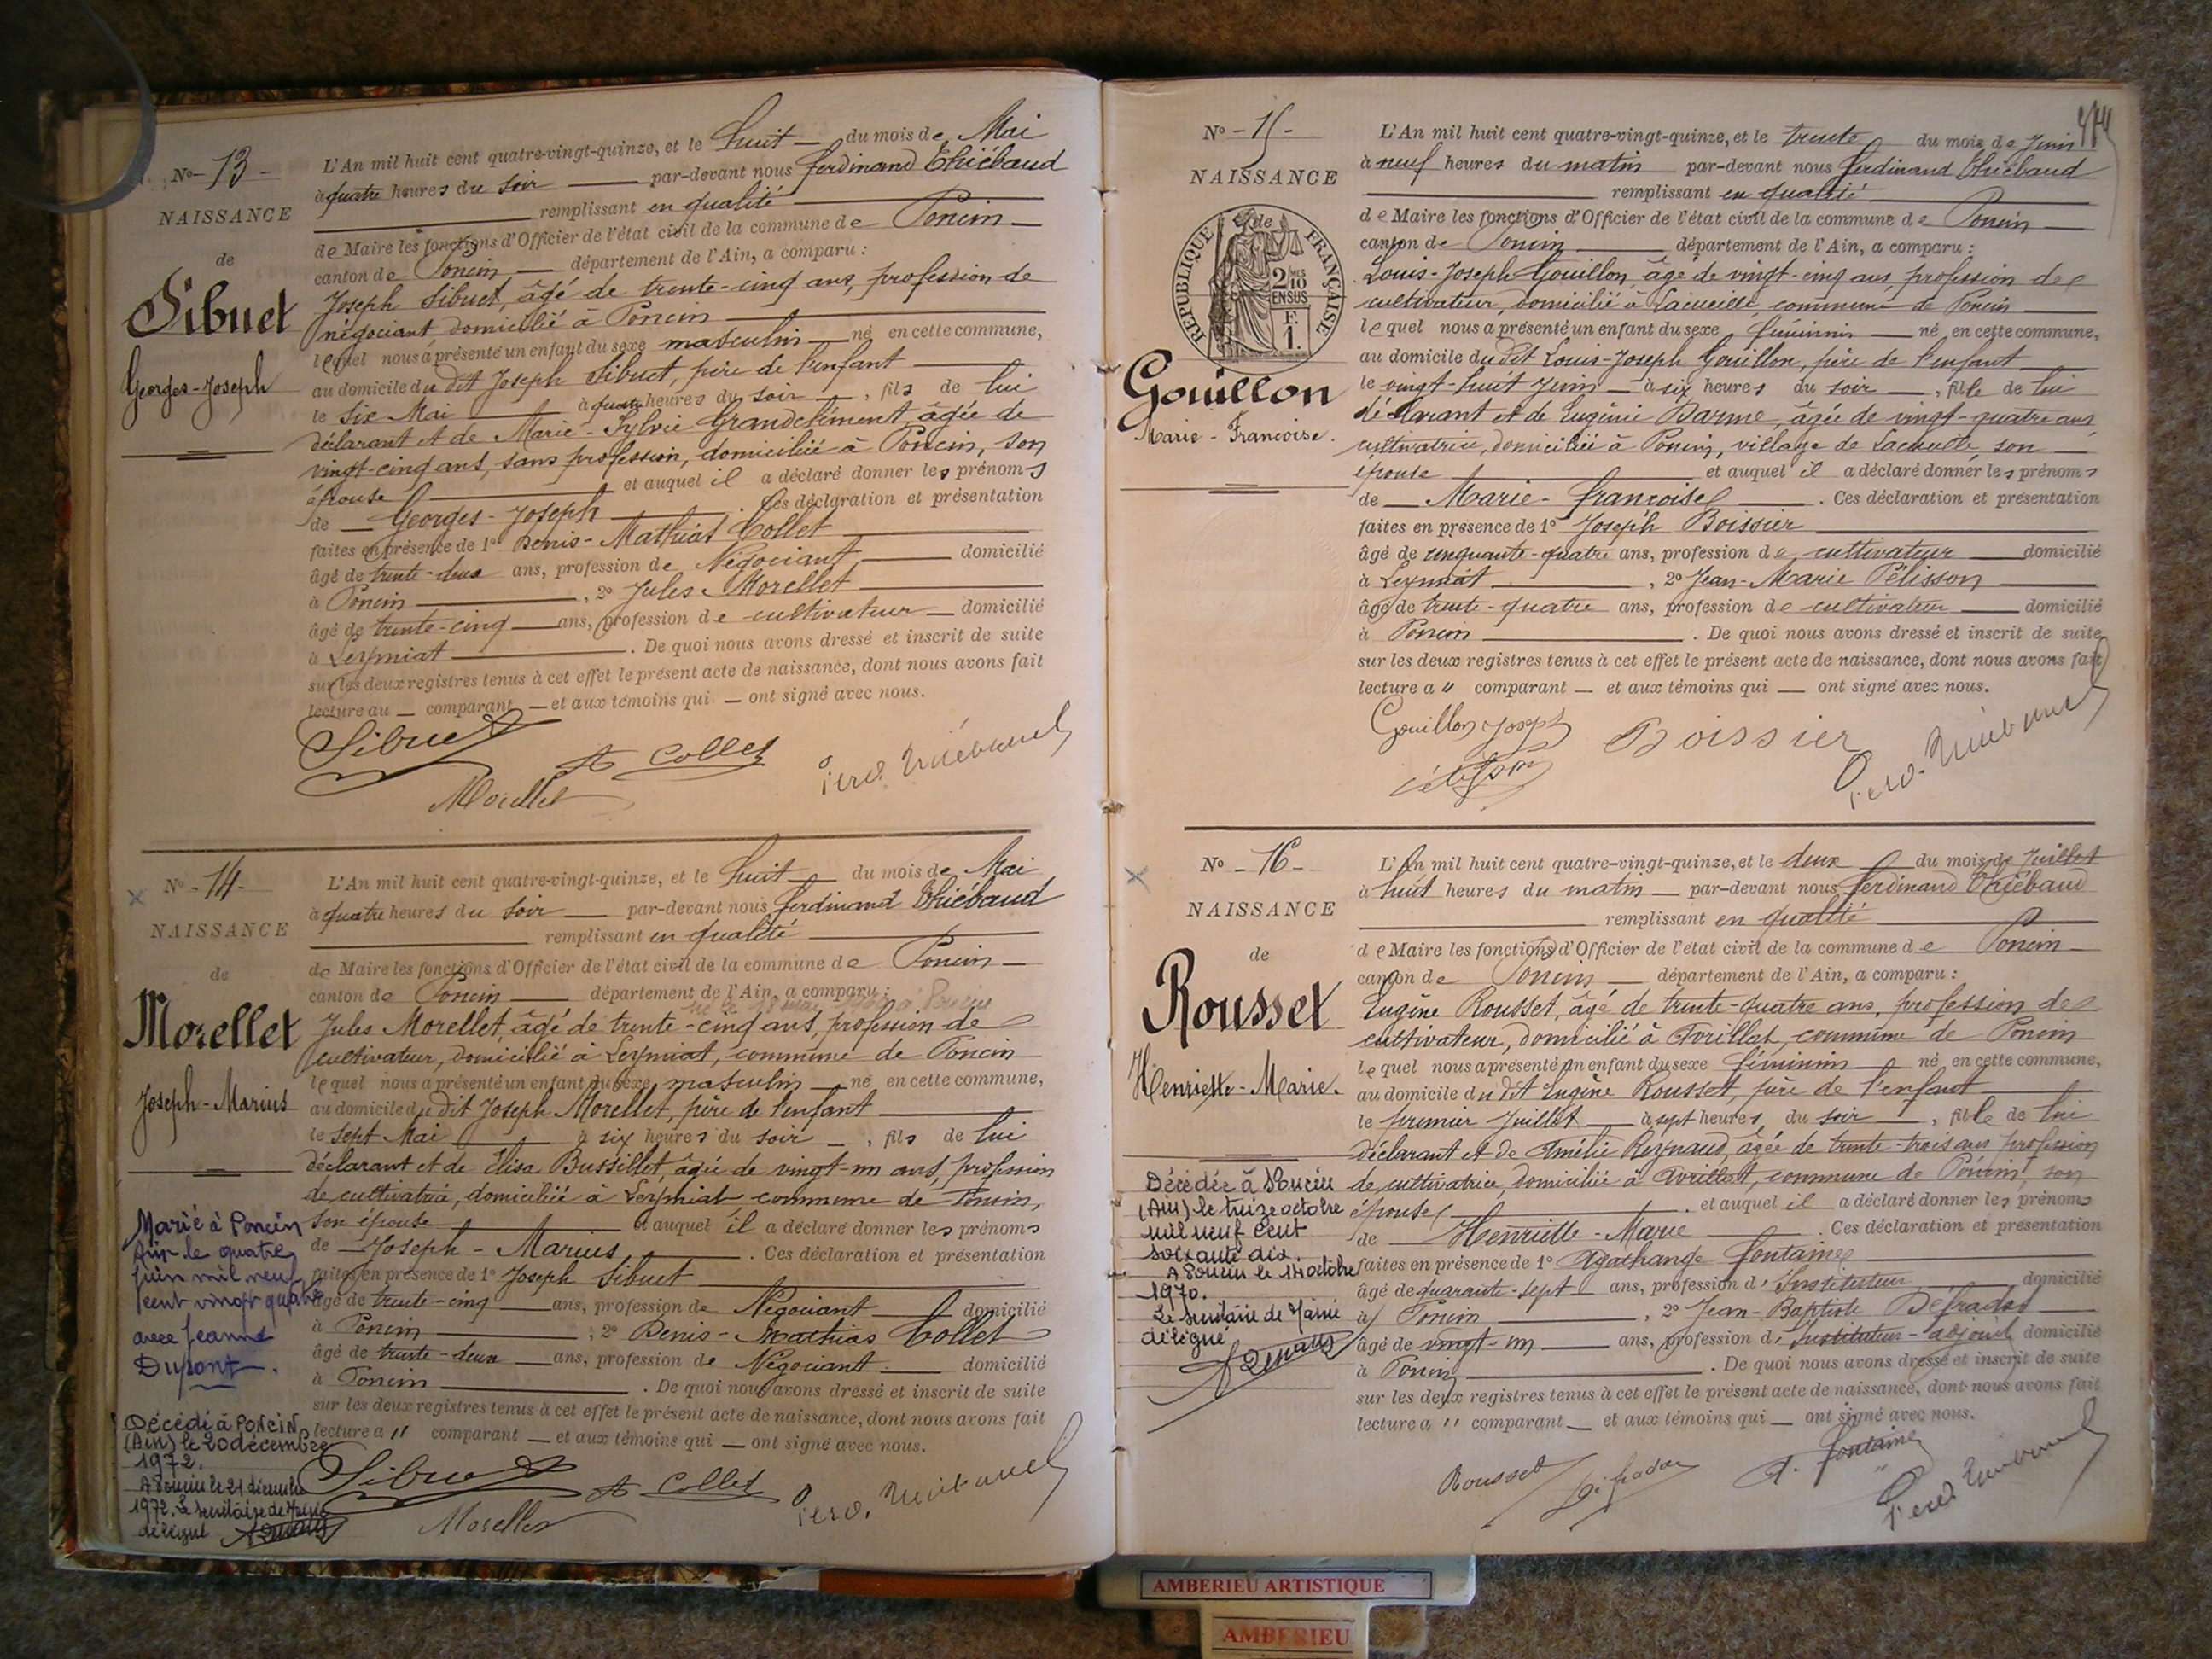 No - 13 -
NAISSANCE
de
Sibuet
Georges-Joseph
L'An mil huit cent quatre-vingt-quinze, et le huit du mois de Mai
à quatre heures du soir par-devant nous Ferdinand Thiébaud
remplissant en qualité
de Maire les fonctions d'Officier de l'état civil de la commune de Poncin
canton de Poncin département de l'Ain, a comparu :
Joseph Sibuet, âgé de trente-cinq ans, profession de
négociant, domicilié à Poncin
lequel nous a présenté un enfant du sexe masculin né en cette commune,
au domicile du dit Joseph Sibuet, père de l'enfant
le six Mai à quatre heures du soir, fils de lui
déclarant et de Marie-Sylvie Grandclément âgée de
vingt-cinq ans, sans profession, domiciliée à Poncin, son
épouse et auquel il a déclaré donner les prénoms
de Georges-Joseph. Ces déclaration et présentation
faites en présence de 1° Denis-Mathias Collet
âgé de trente-deux ans, profession de Négociant domicilié
à Poncin, 2° Jules Morellet
âgé de trente-cinq ans, profession de cultivateur domicilié
à Leymiat. De quoi nous avons dressé et inscrit de suite
sur les deux registres tenus à cet effet le présent acte de naissance, dont nous avons fait
lecture au comparant et aux témoins qui ont signé avec nous.
Sibuet
Collet
Ferd. Thiébaud
Morellet
No - 14 -
NAISSANCE
de
Morellet
Joseph-Marius
L'An mil huit cent quatre-vingt-quinze, et le huit du mois de Mai
à quatre heures du soir par-devant nous Ferdinand Thiébaud
remplissant en qualité
de Maire les fonctions d'Officier de l'état civil de la commune de Poncin
canton de Poncin département de l'Ain, a comparu :
Jules Morellet, âgé de trente-cinq ans, profession de
cultivateur, domicilié à Leymiat, commune de Poncin
lequel nous a présenté un enfant du sexe masculin né en cette commune,
au domicile du dit Joseph Morellet, père de l'enfant
le sept Mai à six heures du soir, fils de lui
déclarant et de Elisa Bussillet âgée de vingt-un ans, profession
de cultivatrice, domiciliée à Leymiat commune de Poncin,
son épouse et auquel il a déclaré donner les prénoms
de Joseph-Marius. Ces déclaration et présentation
faites en présence de 1° Joseph Sibuet
âgé de trente-cinq ans, profession de Négociant domicilié
à Poncin, 2° Denis-Mathias Collet
âgé de trente-deux ans, profession de Négociant domicilié
à Poncin. De quoi nous avons dressé et inscrit de suite
sur les deux registres tenus à cet effet le présent acte de naissance, dont nous avons fait
lecture a " comparant et aux témoins qui ont signé avec nous.
Sibuet
Collet
Ferd. Thiébaud
Morellet
Marié à Poncin
Ain le quatre
juin mil neuf
cent vingt quatre
avec Jeanne
Dupont.
Décédé à PONCIN
(Ain) le 20 décembre
1972.
A Poncin le 21 décembre
1972. Le Secrétaire de Mairie
délégué
No - 15 -
NAISSANCE
de
RÉPUBLIQUE FRANÇAISE
2/10 MES
EN SUS
F.
1.
Gouillon
Marie-Françoise.
L'An mil huit cent quatre-vingt-quinze, et le trente du mois de Juin
à neuf heures du matin par-devant nous Ferdinand Thiébaud
remplissant en qualité
de Maire les fonctions d'Officier de l'état civil de la commune de Poncin
canton de Poncin département de l'Ain, a comparu :
Louis-Joseph Gouillon, âgé de vingt-cinq ans, profession de
cultivateur, domicilié à Lacueille, commune de Poncin
lequel nous a présenté un enfant du sexe féminin né en cette commune,
au domicile du dit Louis-Joseph Gouillon, père de l'enfant
le vingt-huit Juin à six heures du soir, fille de lui
déclarant et de Eugénie Darme, âgée de vingt-quatre ans
cultivatrice, domiciliée à Poncin, village de Lacueille, son
épouse et auquel il a déclaré donner les prénoms
de Marie-Françoise. Ces déclaration et présentation
faites en présence de 1° Joseph Boissier
âgé de cinquante-quatre ans, profession de cultivateur domicilié
à Leymiat, 2° Jean-Marie Pélisson
âgé de trente-quatre ans, profession de cultivateur domicilié
à Poncin. De quoi nous avons dressé et inscrit de suite
sur les deux registres tenus à cet effet le présent acte de naissance, dont nous avons fait
lecture a " comparant et aux témoins qui ont signé avec nous.
Gouillon Joseph
Boissier
Ferd. Thiébaud
No - 16 -
NAISSANCE
de
Rousset
Henriette-Marie.
L'An mil huit cent quatre-vingt-quinze, et le deux du mois de Juillet
à huit heures du matin par-devant nous Ferdinand Thiébaud
remplissant en qualité
de Maire les fonctions d'Officier de l'état civil de la commune de Poncin
canton de Poncin département de l'Ain, a comparu :
Eugène Rousset, âgé de trente-quatre ans, profession de
cultivateur, domicilié à Avrillat, commune de Poncin
lequel nous a présenté un enfant du sexe féminin né en cette commune,
au domicile du dit Eugène Rousset, père de l'enfant
le premier Juillet à sept heures du soir, fille de lui
déclarant et de Amélie Reynaud, âgée de trente-trois ans profession
de cultivatrice, domiciliée à Avrillat, commune de Poncin, son
épouse et auquel il a déclaré donner les prénoms
de Henriette-Marie. Ces déclaration et présentation
faites en présence de 1° Agathange Fontaine
âgé de quarante-sept ans, profession d'Instituteur domicilié
à Poncin, 2° Jean-Baptiste Défradat
âgé de vingt-un ans, profession d'Instituteur-adjoint domicilié
à Poncin. De quoi nous avons dressé et inscrit de suite
sur les deux registres tenus à cet effet le présent acte de naissance, dont nous avons fait
lecture a " comparant et aux témoins qui ont signé avec nous.
Rousset
A. Fontaine
Décédée à Poncin
(Ain) le treize octobre
mil neuf cent
soixante dix.
A Poncin le 14 octobre
1970.
Le Secrétaire de Mairie
délégué
AMBERIEU ARTISTIQUE
AMBERIEU